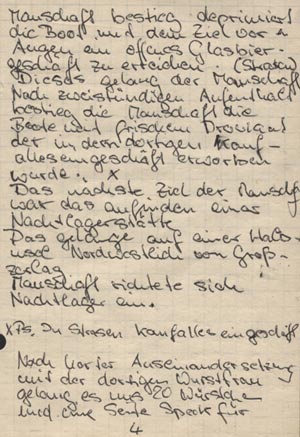 Manschaft bestieg deprimiert
die Boot und dem Ziel vor
Augen ein offenes Glasbier-
geschäft zu erreichen. (Straten)
Dieses gelang der Manschaft
Nach zweistündigen Aufenthalt
bestieg die Manschaft die
Boote mit frischem Proviant
der in dem dortigen Kauf-
alleseingeschäft erworben
wurde. X
Das nächste Ziel der Manschft
war das auffinden einer
Nachtlagerstätte
Das gelang auf einer Halb-
insel Nordwestlich von Groß-
Manschaft richtete sich
Nachtlager ein.
X Ps. In Strasen kaufalleseingeschäft
Nach harter Auseinandersetzung
mit der dortigen Wurstfrau
gelang es uns 20 Würschen
und eine Seite Speck für
4